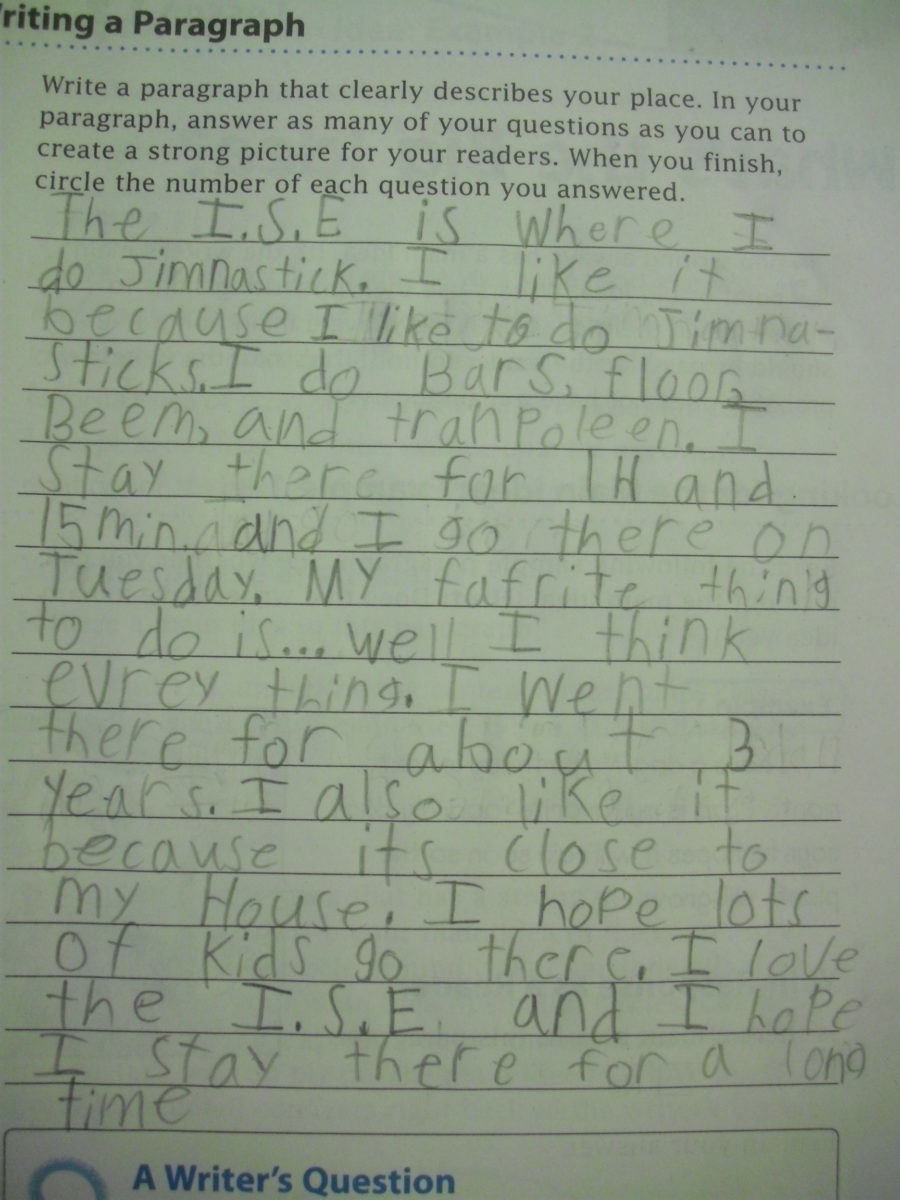 riting a Paragraph
Write a paragraph that clearly describes your place. In your
paragraph, answer as many of your questions as you can to
create a strong picture for your readers. When you finish,
circle the number of each question you answered.
The I.S.E is where I
do Jimnastick. I like it
because I like to do Jimna-
sticks. I do Bars, floor,
Beem, and tranpoleen. I
stay there for 1H and
15 min. and I go there on
Tuesday. My fafrite thing
to do is... well I think
evrey thing. I went
there for about 3
years. I also like it
because its close to
my House. I hope lots
of kids go there. I love
the I.S.E. and I hope
I stay there for a long
time
A Writer's Question